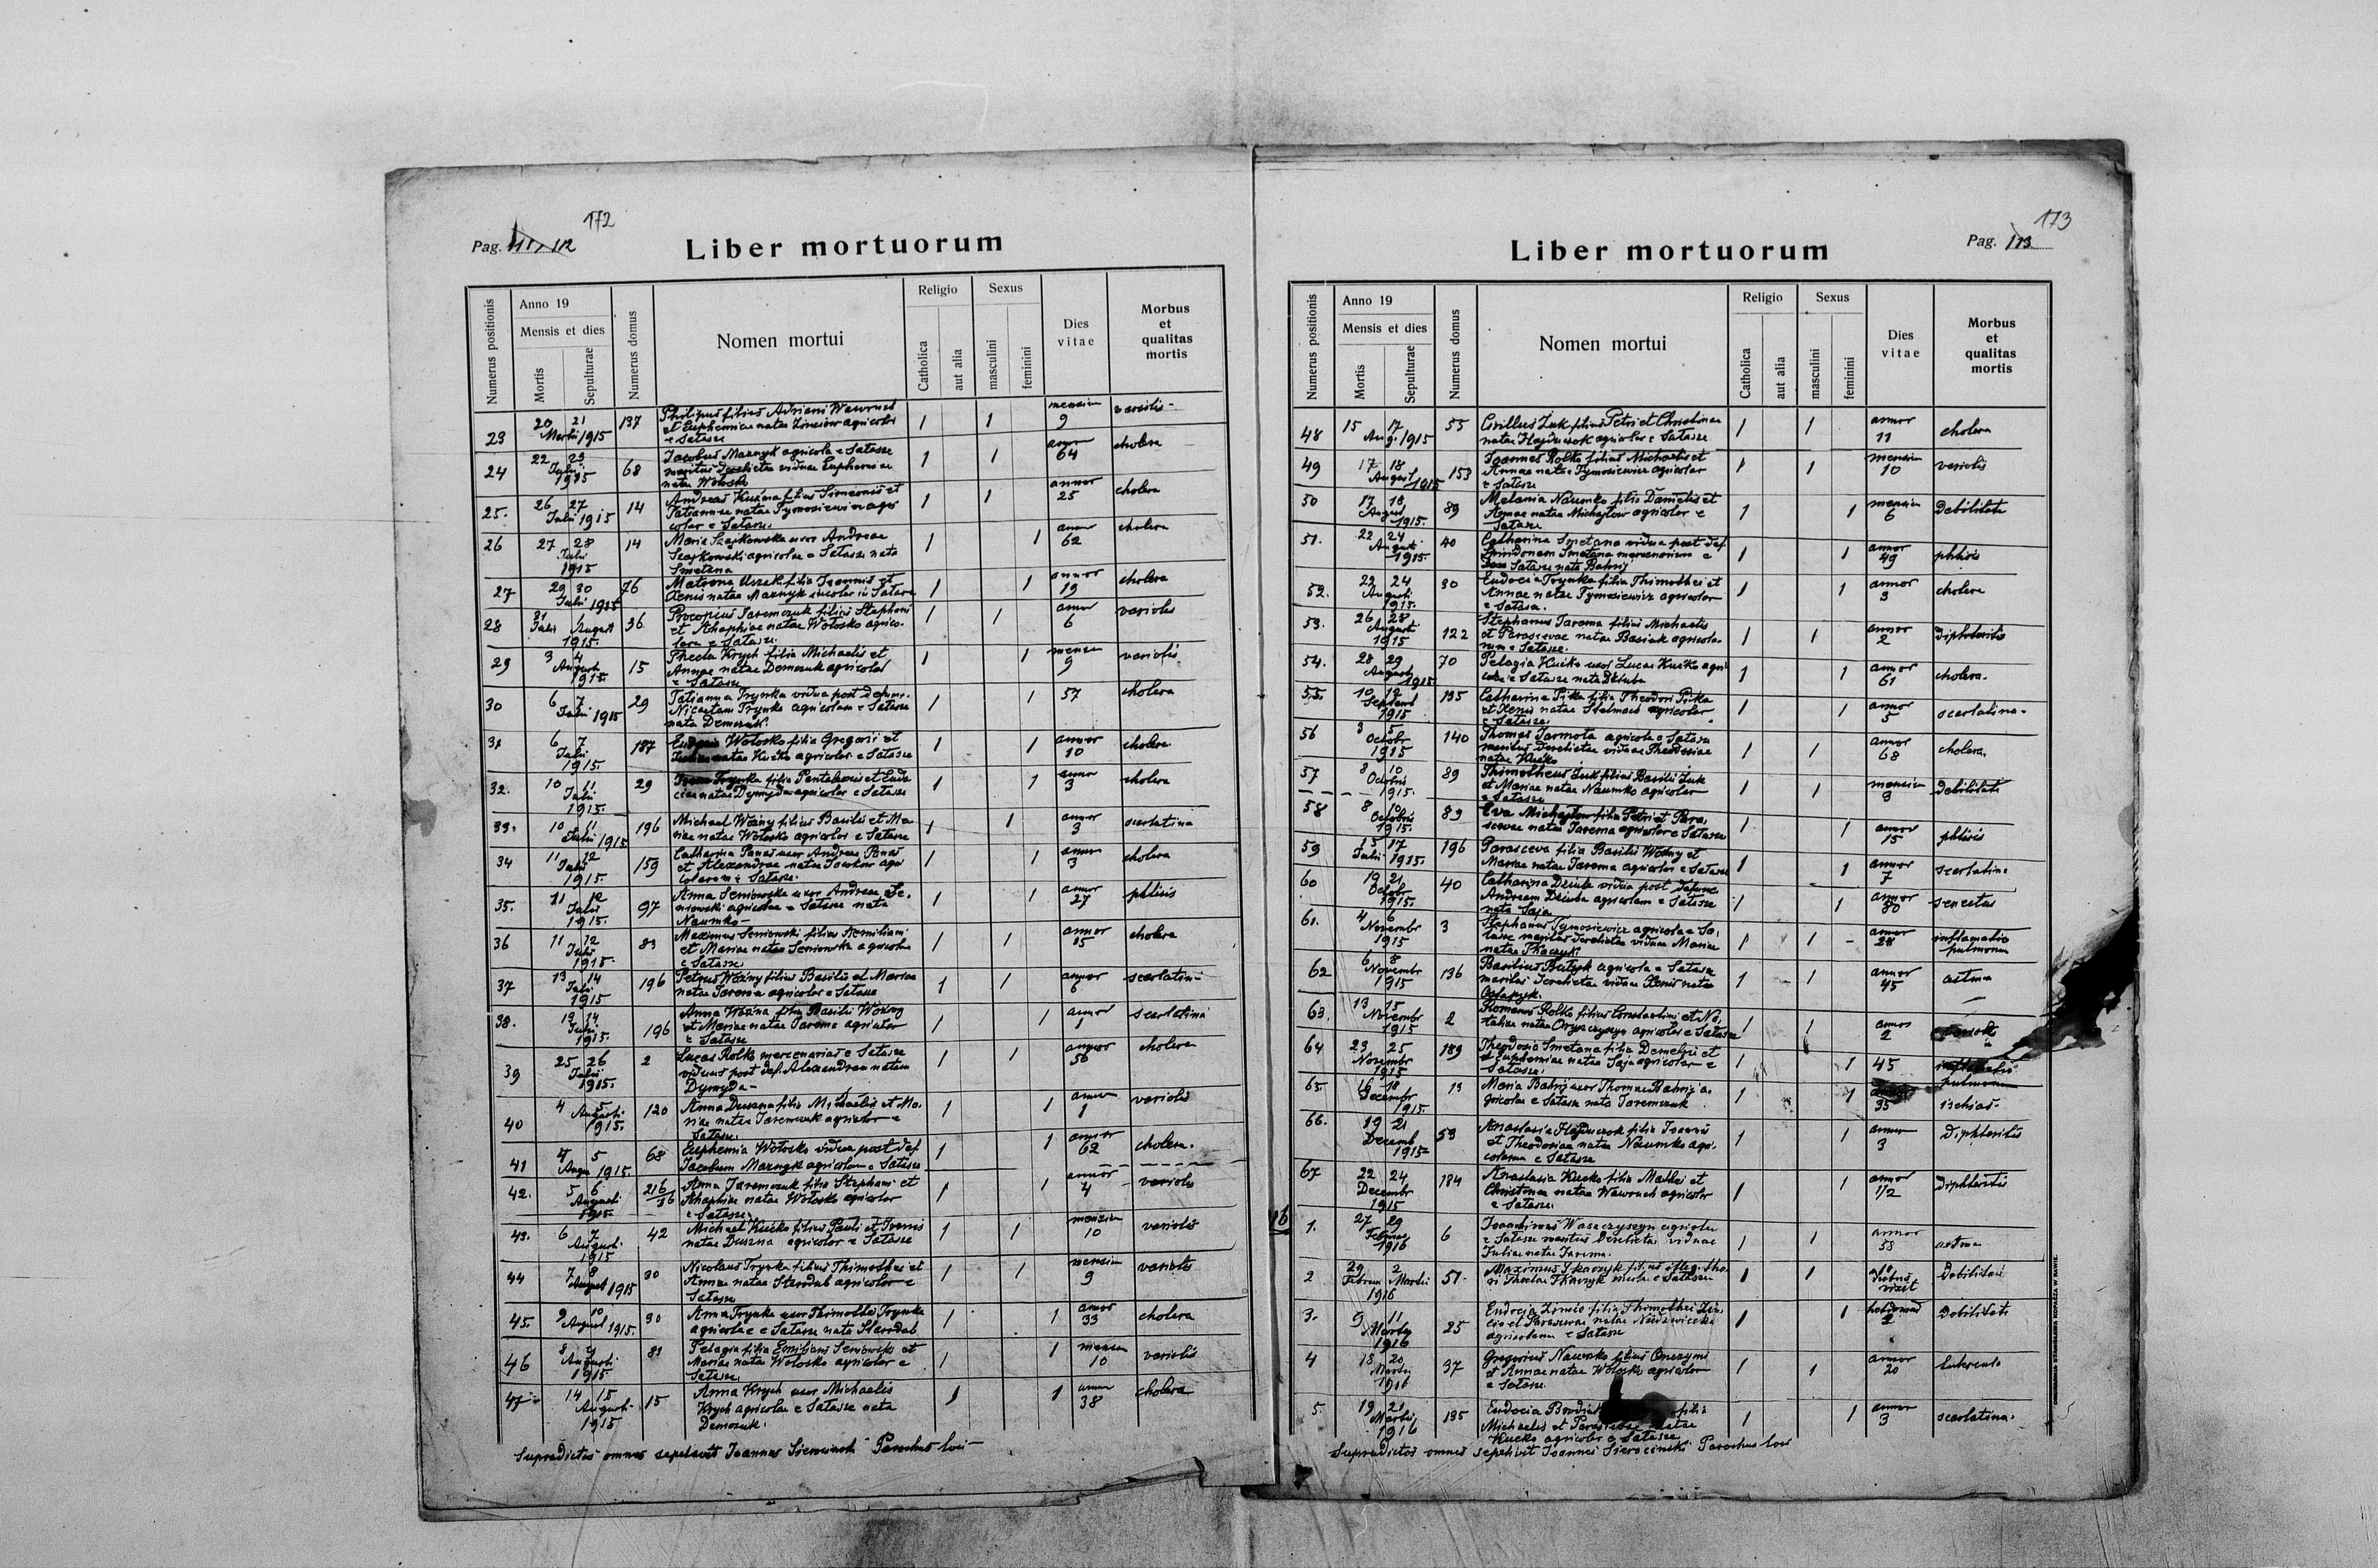 172
Pag. 112
Liber mortuorum
Numerus positionis
Anno 19
Mensis et dies
Mortis
Sepulturae
Numerus domus
Nomen mortui
Religio
Catholica
aut alia
Sexus
masculini
feminini
Dies vitae
Morbus et qualitas mortis
23 20 21 Martii 1915 137 Philipus filius Adriani Wawruch 1 1 mensium 9 variolis
et Euphemiae natae agricolar
e Satasze
24 22 23 Julii 1915 68 Jacobus Maznyk agricola e Satasze 1 1 annor 64 cholera
maritus derelictae viduae Euphemiae
natae Wołosko
25. 26 27 Julii 1915 14 Andreas Kuźma filius Simeonis et 1 1 annor 25 cholera
Tatiannae natae Tymosiewicz agri
colar e Satasze
26 27 28 Julii 1915 14 Maria Szajkowska uxor Andreae 1 1 annor 62 cholera
Szajkowski agricolae e Satasze nata
Smetana
27 29 30 Julii 1915 76 Matrona filia Joannis et 1 1 annor 19 cholera
Xenis natae Maznyk
28 31 Julii 1 August 1915. 36 Procopius Jaremczuk filius Stephani 1 1 annor 6 variolis
et Ahaphiae natae Wołosko agrico-
larum e Satasze
29 3 4 Augusti 1915 15 Thecla Krych filia Michaelis et 1 1 mensium 9 variolis
Annae natae Demczuk agricolar
e Satasze
30 6 7 Julii 1915 29 Tatianna Trynka vidua post defunc. 1 1 57 cholera
Nicetam Trynka agricolam e Satasze
nata Demczuk.
31 6 7 Julii 1915. 187 Wołosko filia Gregorii et 1 1 annor 10 cholera
natae Kućko agricolar e Satasze
32. 10 11 Julii 1915. 29 Trynka filia Pentaleonis et Eudo 1 1 annor 3 cholera
ciae natae Dymyda agricolar e Satasze
33. 10 11 Julii 1915 196 Michael Woźny filius Basilii et Ma 1 1 annor 3 scarlatina
riae natae Wołosko agricolar e Satasze
34 11 12 Julii 1915. 159 Catharina Panas uxor Andreae Panas 1 1 annor 3 cholera
et Alexandrae natae agri
colarum e Satasze.
35. 11 12 Julii 1915. 97 Anna Seniowska uxor Andreae Se- 1 1 annor 27 phtisis
niowski agricolae e Satasze nata
Naumko
36 11 12 Julii 1915. 83 Maximus Seniowski filius Aemiliani 1 1 annor 15 cholera
et Mariae natae Seniowska agricolar
e Satasze
37 13 14 Julii 1915 196 Petrus Woźny filius Basilii et Mariae 1 1 annor 6 scarlatina
natae Jarema agricolar e Satasze
38. 13 14 Julii 1915. 196 Anna Woźna filia Basilii Woźny 1 1 annor 1 scarlatina
et Mariae natae Jarema agricolar
e Satasze
39 25 26 Julii 1915. 2 Lucas Rolko mercenarius e Satasze 1 1 annor 56 cholera
viduus post def. Alexandram natam
Dymyda
40 4 5 Augusti 1915. 120 Anna Duszna filia Michaelis et Ma- 1 1 annor 1 variolis
riae natae Jaremczuk agricolar e
Satasze.
41 4 5 Augu 1915. 68 Euphemia Wołosko vidua post def 1 1 annor 62 cholera.
Jacobum Maznyk agricolam e Satasze
42. 5 6 Augusti 1915. 216/36 Anna Jaremczuk filia Stephani et 1 1 annor 4 variolis
Ahaphiae natae Wołosko agricolar
e Satasze.
43. 6 7 Augusti 1915 42 Michael Kućko filius Pauli et Irenis 1 1 mensium 10 variolis
natae Duszna agricolar e Satasze
44 7 8 August 1915 30 Nicolaus Trynka filius Thimothei et 1 1 mensium 9 variolis
Annae natae Starodub agricolar e
Satasze
45. 9 10 August 1915. 30 Anna Trynka uxor Thimothei Trynka 1 1 annor 33 cholera
agricolae e Satasze nata Starodub
46 8 9 Augusti 1915 81 Pelagia filia Emiliani Seniowski et 1 1 mensium 10 variolis
Mariae natae Wołosko agricolar e
Satasze.
47 14 15 August 1915 15 Anna Krych uxor Michaelis 1 1 annor 38 cholera
Krych agricolae e Satasze nata
Demczuk.
Supradictos omnes sepelivit Joannes Sierocinski Parochus loci
173
Pag. 113
Liber mortuorum
Numerus positionis
Anno 19
Mensis et dies
Mortis
Sepulturae
Numerus domus
Nomen mortui
Religio
Catholica
aut alia
Sexus
masculini
feminini
Dies vitae
Morbus et qualitas mortis
48 15 17 Aug. 1915 55 Cirillus Żuk filius Petri et Christinae 1 1 annor 11 cholera
natae Hajduczok agricolar e Satasze
49 17 18 August 1915 153 Joannes Rolko filius Michaelis et 1 1 mensium 10 variolis
Annae natae Tymosiewicz agricolar
e Satasze
50 17 18 August 1915. 89 Melania Naumko filia Danielis et 1 1 mensium 6 Debilitate
Annae natae Michajłow agricolar e
Satasze
51. 22 24 August 1915. 40 Catharina Smetana vidua post def. 1 1 annor 49 phtisis
Spiridonem Smetana mercenarium e
Satasze nata Bahrij
52. 22 24 Augusti 1915. 30 Eudocia Trynka filia Thimothei et 1 1 annor 3 cholera
Annae natae Tymosiewicz agricolar
e Satasze.
53. 26 28 Augusti 1915 122 Stephanus Jarema filius Michaelis 1 1 annor 2 Diphteritis
et Parascevae natae Basiak agricola-
rum e Satasze.
54. 28 29 Augusti 1915 70 Pelagia Kućko uxor Lucae Kućko agri 1 1 annor 61 cholera.
colae e Satasze nata Dziuba
55. 10 12 Septemb 1915 135 Catharina Pitka filia Theodori Pitka 1 1 annor 5 scarlatina.
et Xenis natae Stelmach agricolar
e Satasze.
56 3 5 Octobr 1915 140 Thomas Jarmota agricola e Satasze 1 1 annor 68 cholera.
maritus derelictae viduae Theodosiae
natae Kućko
57 8 10 Octobris 1915. 89 Thimotheus Żuk filius Basilii Żuk 1 1 mensium 3 Debilitate
et Mariae natae Naumko agricolar
e Satasze
58 8 10 Octobris 1915. 89 Eva Michajłow filia Petri et Para, 1 1 annor 15 phtisis
scevae natae Jarema agricolar e Satasze
59 15 17 Julii 1915. 196 Parasceva filia Basilii Woźny et 1 1 annor 7 scarlatina
Mariae natae Jarema agricolar e Satasze
60 19 21 Octobr 1915. 40 Catharina Dziuba vidua post defunc 1 1 annor 80 senectus
Andream Dziuba agricolam e Satasze
nata Saja
61. 4 6 Novembr 1915 3 Stephanus Tymosiewicz agricola e Sa, 1 1 annor 28 inflamatio
tasze maritus derelictae viduae Mariae pulmonum
natae Tkaczyk
62 6 8 Novembr 1915 136 Basilius Batyk agricola e Satasze 1 1 annor 45 astma
maritus derelictae viduae Xenis natae
63. 13 15 Novembr 1915 2 Romanus Rolko filius Constantini et Na, 1 1 annor 2
taliae natae Oryszczyszyn agricolar e Satasze
64 23 25 Novembr 1915 189 Theodosia Smetana filia Demetrii et 1 1 45
Euphemiae natae Saja agricolar e pulmonum
Satasze.
65. 16 18 Decembr 1915. 13 Maria Bahrij uxor Thomae Bahrij a- 1 1 35 ischias.
gricolae e Satasze nata Jaremczuk
66. 19 21 Decemb 1915 53 Anastasia Hajduczok filia Joannis 1 1 annor 3 Diphteritis
et Theodosiae natae Naumko agri-
colarum e Satasze
67 22 24 Decembr 1915 184 Anastasia Kućko filia Mathei et 1 1 annor 1/2 Diphteritis
Christinae natae Wawruch agricolar
e Satasze.
16
1. 27 29 Februar 1916 6 Joachimus Waszczyszyn agricola 1 1 annor 53 astma
e Satasze maritus derelictae viduae
Juliae natae Jarema.
2 29 2 Februar Martii 1916 51. Maximus Tkaczyk filius illeg. tho- 1 1 10 vixit Debilitas
ri Theclae Tkaczyk e Satasze
3. 9 11 Martii 1916 25 Eudocia filia Thimothei 1 1 2 Debilitate
et Parascevae natae
agricolarum e Satasze
4 18 20 Martii 1916 37 Gregorius Naumko filius Onezymi 1 1 annor 20
et Annae natae Wołosko agricolar
e Satasze
5 19 21 Martii 1916 135 Eudocia filia 1 1 annor 3 scarlatina.
Michaelis et Parascevae natae
Kućko agricolar e Satasze
Supradictos omnes sepelivit Joannes Sierocinski Parochus loci
DRUKARNIA STANISŁAWA KOPACZA W RAWIE.